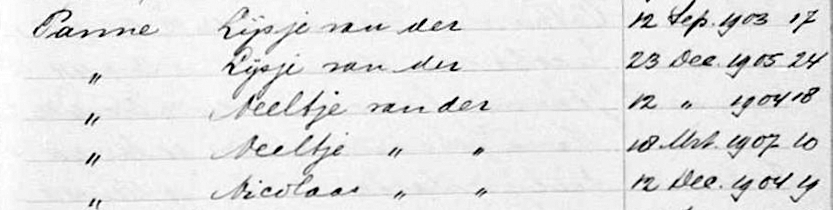 Panne Lijsje van der 12 Sep. 1903 17
„ Lijsje van der 23 Dec. 1905 24
„ Neeltje van der 12 „ 1904 18
„ Neeltje „ „ 18 Mrt. 1907 10
„ Nicolaas „ „ 12 Dec. 1904 19